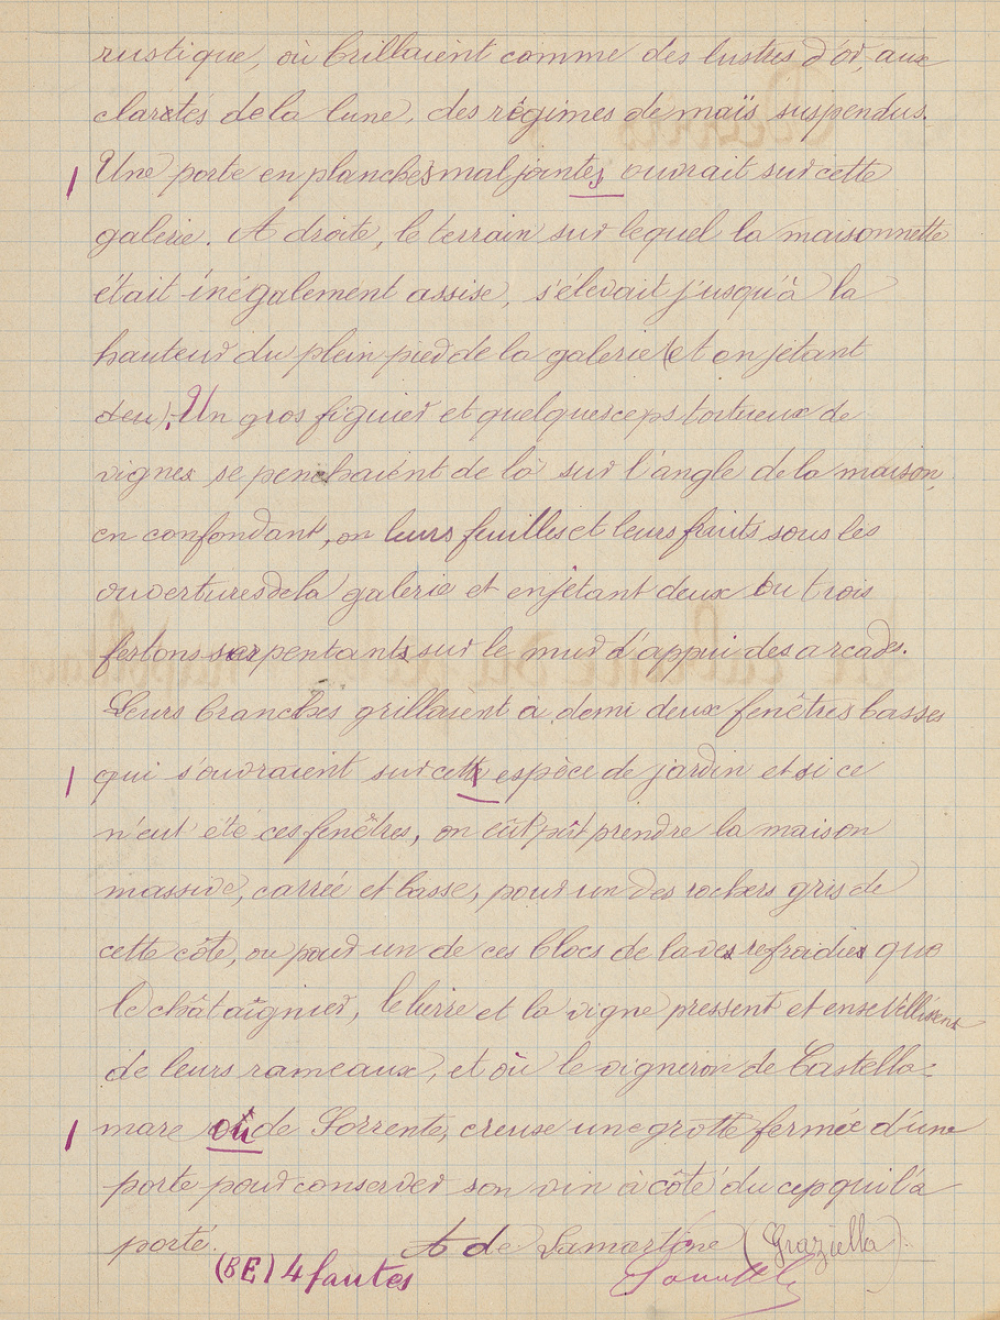 rustique, où brillaient comme des lustres d'or, aux
clartés de la lune, des régimes de maïs suspendus.
Une porte en planches mal jointes ouvrait sur cette
galerie. A droite, le terrain sur lequel la maisonnette
était inégalement assise, s'élevait jusqu'à la
hauteur du plein pied de la galerie (et en jetant
deu). Un gros figuier et quelques ceps tortueux de
vignes se penchaient de là sur l'angle de la maison,
en confondant, on leurs feuilles et leurs fruits sous les
ouvertures de la galerie et en jetant deux ou trois
festons serpentants sur le mur d'appui des arcades.
Leurs branches grillaient à demi deux fenêtres basses
qui s'ouvraient sur cette espèce de jardin et si ce
n'eut été ces fenêtres, on eût pût prendre la maison
massive, carrée et basse, pour un des rochers gris de
cette côte, ou pour un de ces blocs de laves refroidies que
le châtaignier, le lierre et la vigne pressent et ensevelissent
de leurs rameaux, et où le vigneron de Castella=
mare où de Sorrente, creuse une grotte fermée d'une
porte pour conserver son vin à côté du cep qui l'a
porté. A de Lamartine (Graziella).
(BE) 4 fautes